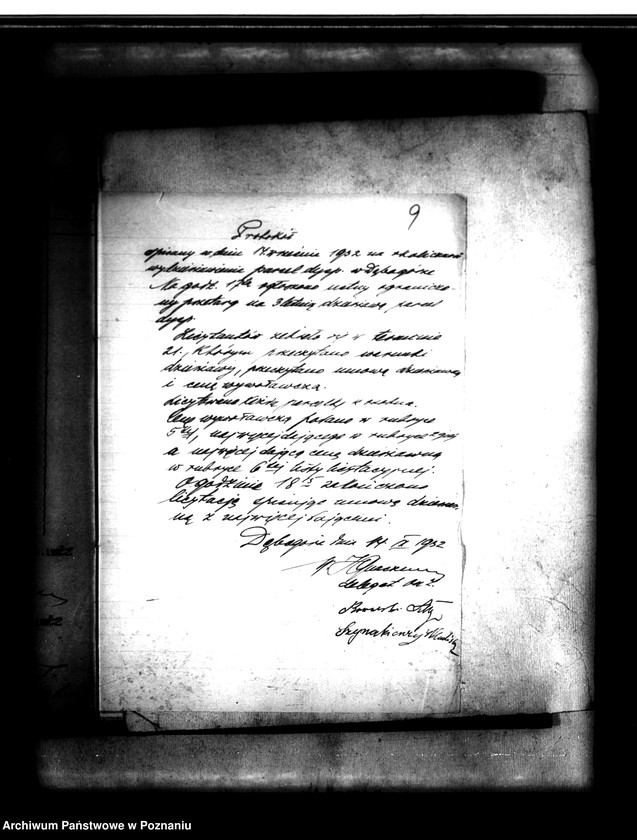 9
Protokół
spisany w dniu 14 września 1932 na okoliczność
wydzierżawienia parcel dysp. w Dębogórze
Na godz. 17tą ogłoszono ustny ograniczo-
ny przetarg na 3 letnią dzierżawę parcel
dysp.
Licytantów zebrało się w terminie
21, którym przeczytano warunki
dzierżawy, przeczytano umowę dzierżawną
i cenę wywoławczą.
Licytowano każdą parcelkę z osobna.
Cenę wywoławczą podano w rubryce
5tej, najwięcej dającego w rubryce
a najwięcej dającą cenę dzierżawną
w rubryce 6tej listy licytacyjnej.
O godzinie 18 15 zakończono
licytację spisując umowę dzierżaw-
ną z najwięcej dającemi.
Dębogóra dnia 14 IX 1932
delegat
Szymankiewicz
Archiwum Państwowe w Poznaniu